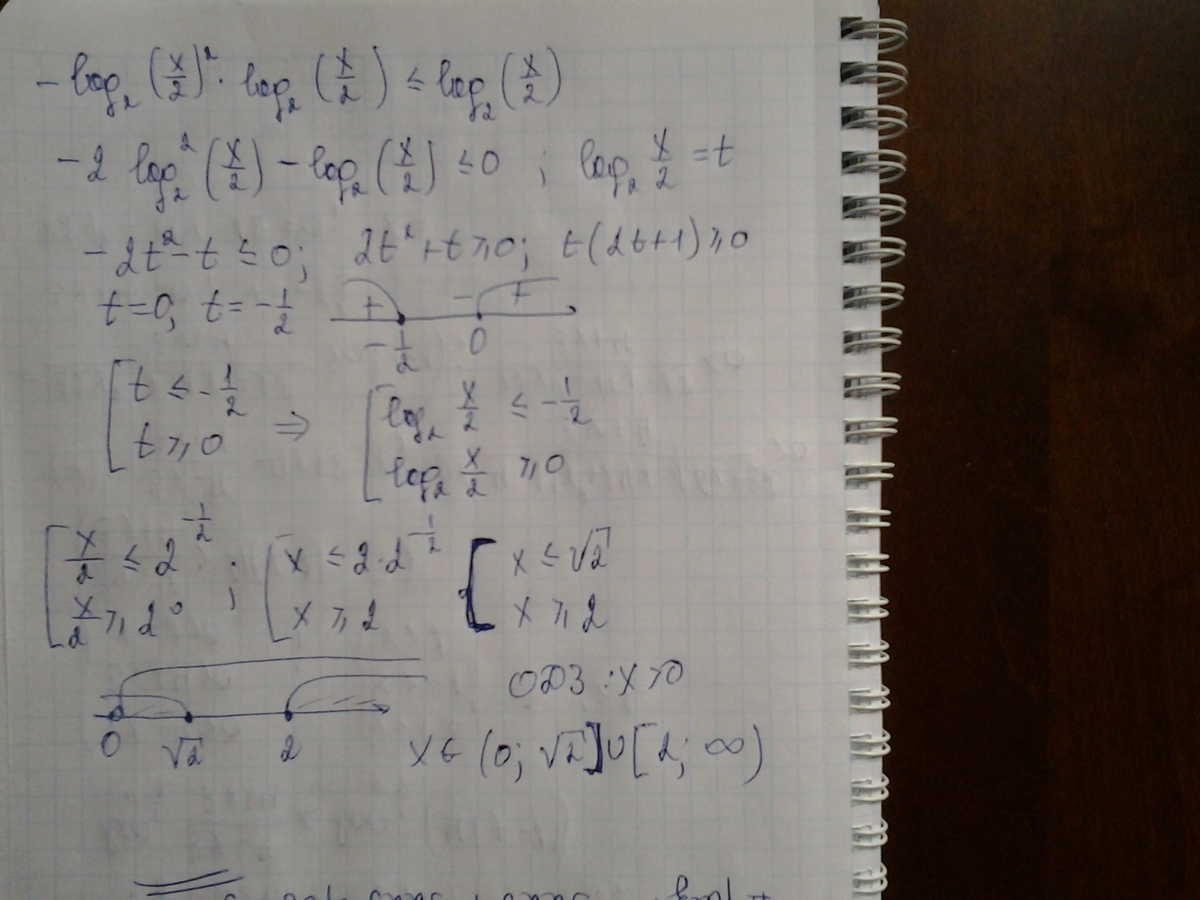 -log₂(x/2)² · log₂(x/2) ≤ log₂(x/2)
-2 log₂²(x/2) - log₂(x/2) ≤ 0 ; log₂ x/2 = t
-2t² - t ≤ 0; 2t² + t ≥ 0; t(2t+1) ≥ 0
t=0, t = -1/2
+ - +
-1/2 0
[ t ≤ -1/2 ; t ≥ 0 ⇒ [ log₂ x/2 ≤ -1/2 ; log₂ x/2 ≥ 0
[ x/2 ≤ 2^(-1/2) ; x/2 ≥ 2⁰ ; [ x ≤ 2·2^(-1/2) ; x ≥ 2 [ x ≤ √2 ; x ≥ 2
ОДЗ: x>0
0 √2 2
x ∈ (0; √2] ∪ [2; ∞)